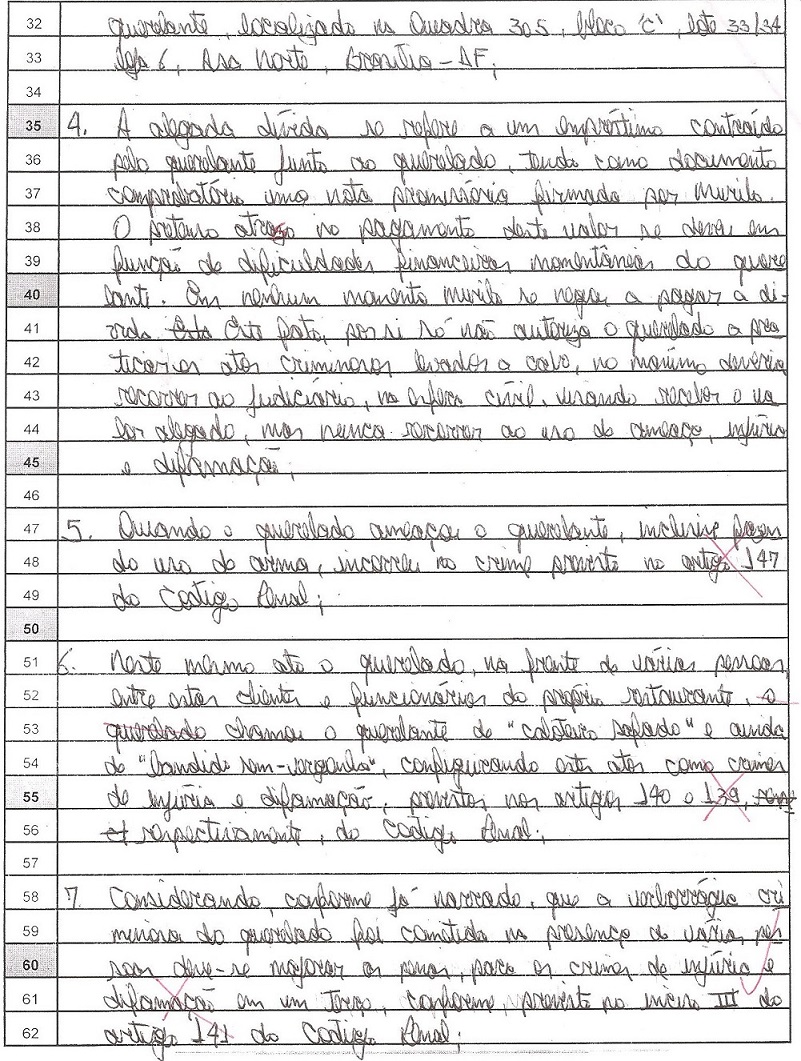 32 querelante, localizado na Quadra 305, bloco 'c', lote 33/34
33 loja 6, Asa Norte, Brasília-DF;
34
35 4. A alegada dívida se refere a um empréstimo contraído
36 pelo querelante junto ao querelado, tendo como documento
37 comprobatório uma nota promissória firmada por Murilo.
38 O pretenso atraso no pagamento deste valor se deveu em
39 função de dificuldades financeiras momentâneas do quere
40 lante. Em nenhum momento Murilo se negou a pagar a dí-
41 vida Esta Este fato, por si só não autoriza o querelado a pra
42 ticar os atos criminosos levados a cabo, no máximo deveria
43 recorrer ao judiciário, na esfera cível, visando receber o va
44 lor alegado, mas nunca recorrer ao uso de ameaça, injúria
45 e difamação;
46
47 5. Quando o querelado ameaçou o querelante, inclusive fazen
48 do uso de arma, incorreu no crime previsto no artigo 147
49 do Codigo Penal;
50
51 6. Neste mesmo ato o querelado, na frente de várias pessoas,
52 entre estas clientes e funcionários do próprio restaurante, o
53 querelado chamou o querelante de "caloteiro safado" e ainda
54 de "bandido sem-vergonha", configurando estes atos como crimes
55 de injúria e difamação, previstos nos artigos 140 e 139,
56 respectivamente, do Codigo Penal;
57
58 7. Considerando, conforme já narrado, que a verborrágia cri
59 minosa do querelado foi cometida na presença de várias pes
60 soas deve-se majorar as penas, para os crimes de injúria e
61 difamação em um terço, conforme previsto no inciso III do
62 artigo 141 do Codigo Penal;